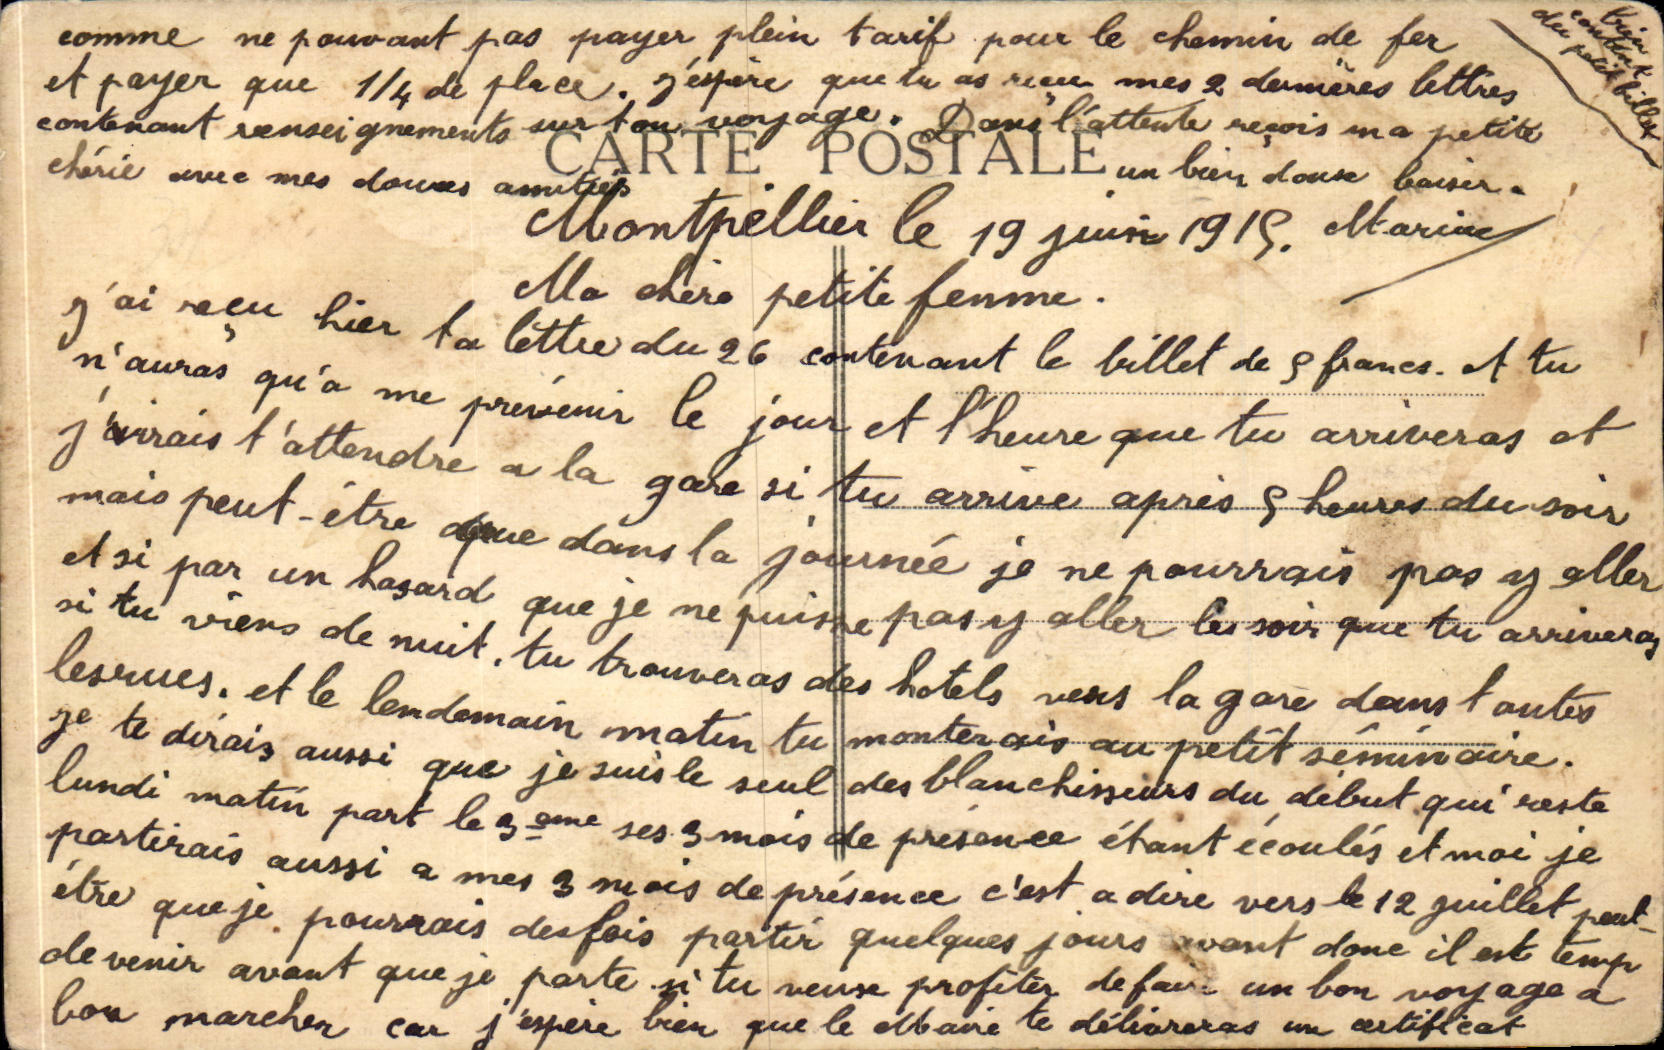 comme ne pouvant pas payer plein tarif pour le chemin de fer
et payer que 1/4 de place. j'éspère que tu as reçu mes 2 dernières lettres
contenant renseignements sur ton voyage. Dans l'attente reçois ma petite
chérie avec mes douces amitiés un bien douse baiser.
CARTE POSTALE
bien
content
du petit billet
Montpellier le 19 juin 1915. Marius
Ma chère petite femme.
j'ai reçu hier ta lettre du 26 contenant le billet de 5 francs. et tu
n'auras qu'a me prévenir le jour et l'heure que tu arriveras et
j'irrais t'attendre a la gare si tu arrive après 5 heures du soir
mais peut-être que dans la journée je ne pourrais pas y aller
et si par un hasard que je ne puisse pas y aller les soir que tu arriveras
si tu viens de nuit. tu trouveras des hotels vers la gare dans toutes
lesrues. et le lendemain matin tu monterais au petit séminaire.
je te dirais aussi que je suis le seul des blanchisseurs du début qui reste
lundi matin part le 3eme ses 3 mois de présence étant écoulés et moi je
partirais aussi a mes 3 mois de présence c'est a dire vers le 12 juillet peut-
être que je pourrais desfois partir quelques jours avant donc il est temp
de venir avant que je parte si tu veuse profiter de faire un bon voyage a
bon marcher car j'éspère bien que le Maire te délivreras un certificat